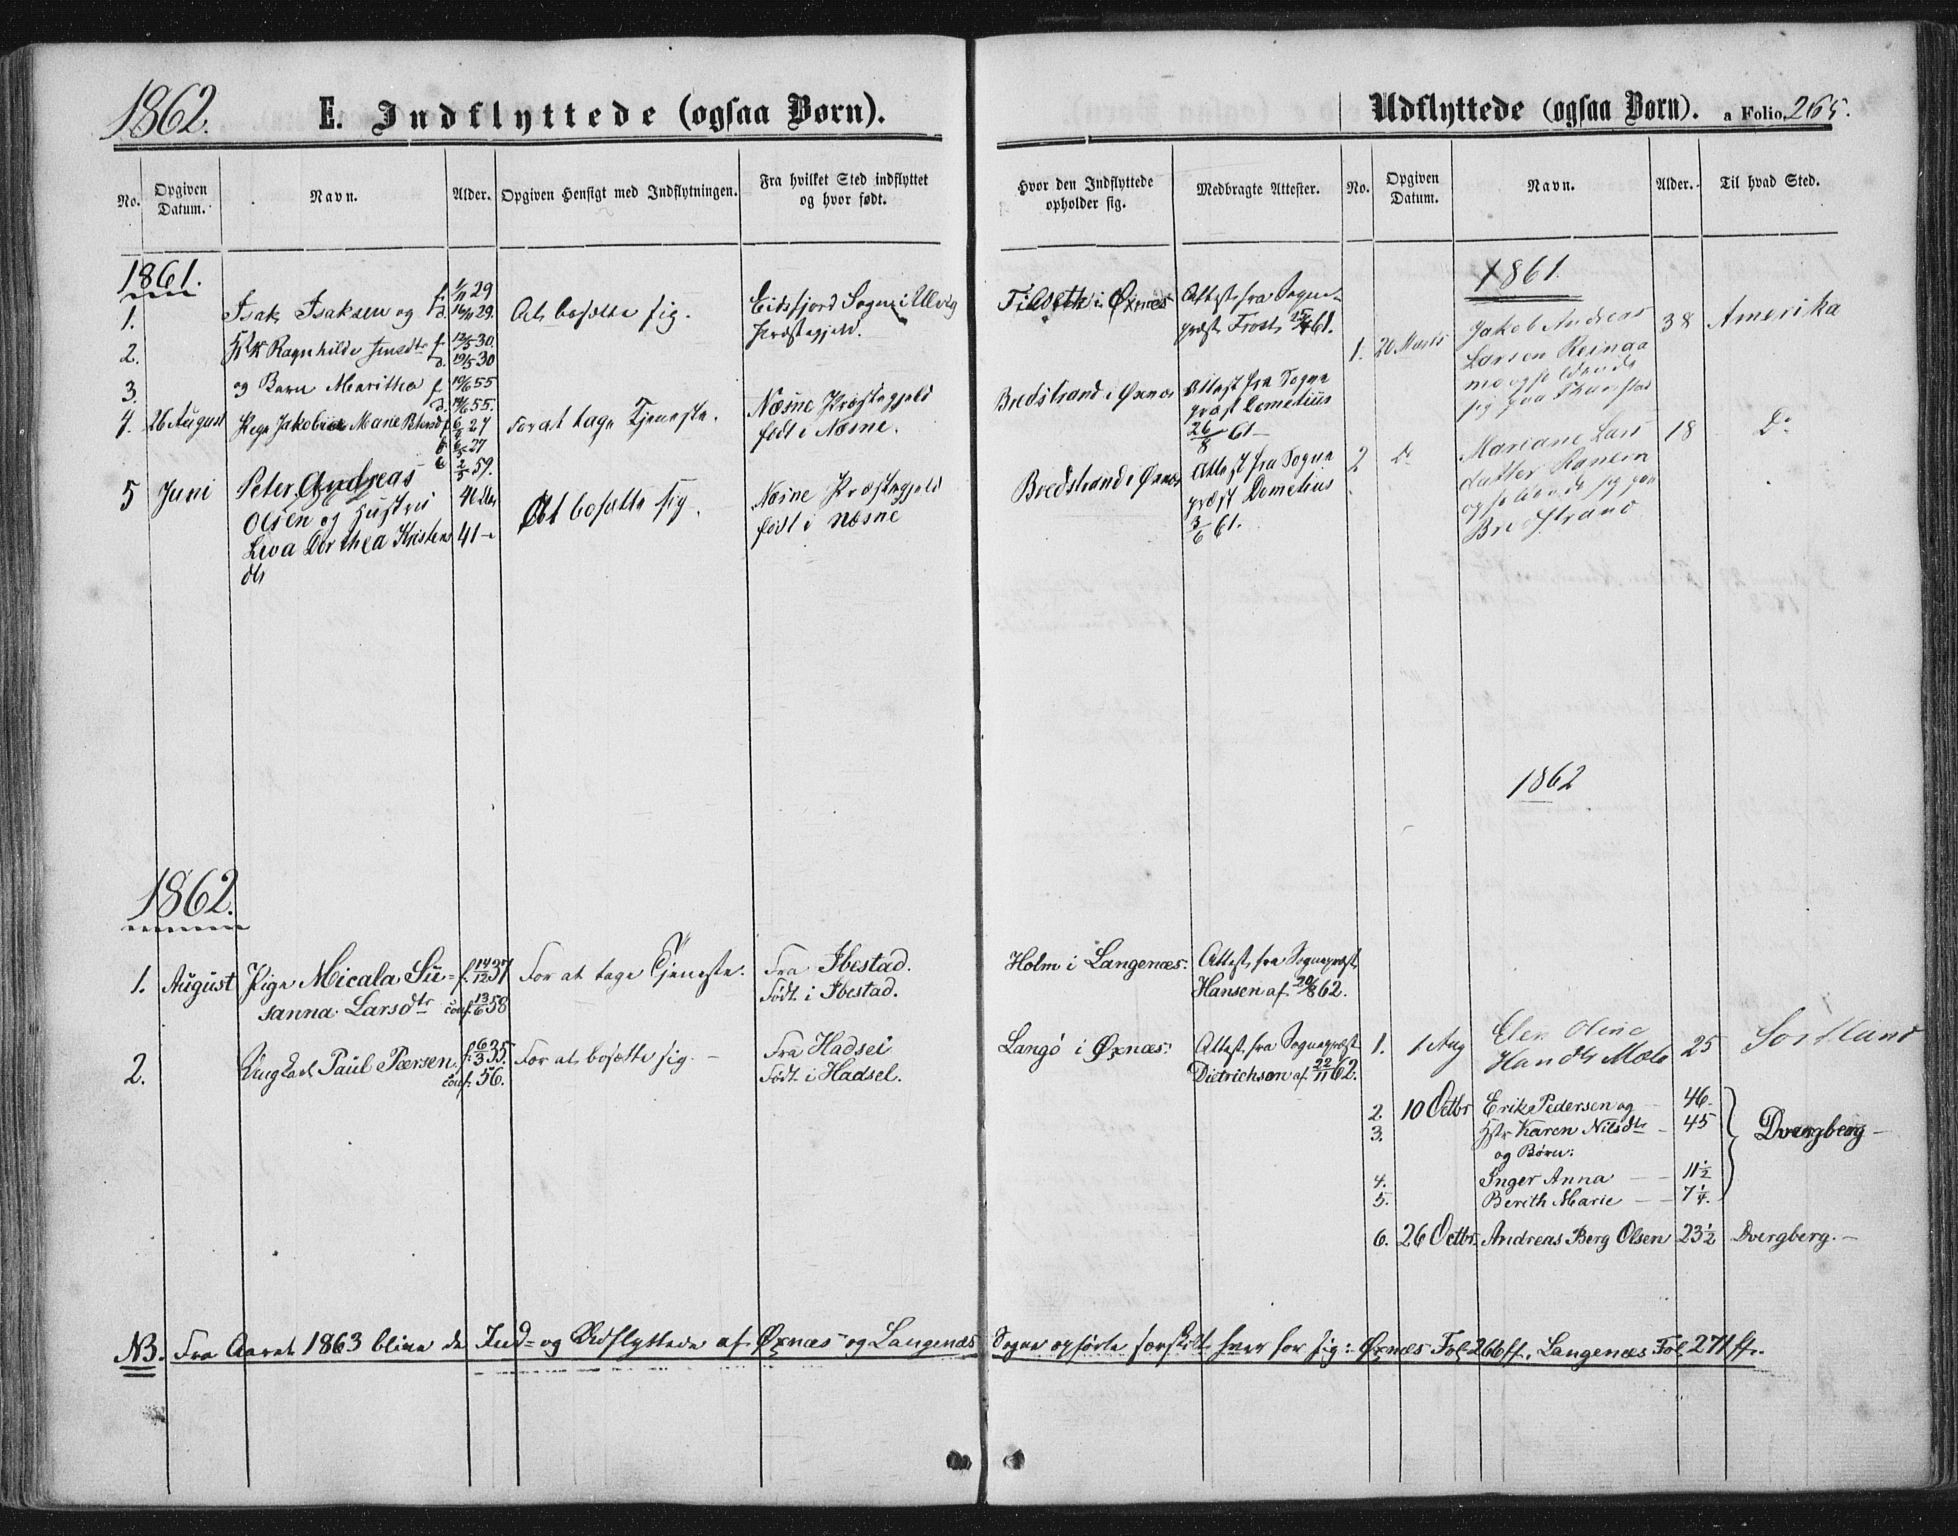 1862.
E. Indflyttede (ogsaa Børn).
No.
Opgiven Datum.
Navn.
Alder.
Opgiven Hensigt med Indflytningen.
Fra hvilket Sted indflyttet og hvor født.
1861.
1. Isak Isaksen og f. 1/11 29 At bosætte sig. Eidsfjord Sogn i Ulvig
d. 29. Præstegjeld.
2. Ragnhilde f. 12/5 30.
d. 19/5 30
3. og Barn Maritha f. 10/6 55
d. 55.
4. 26 August Pige Jakobine Marie f. 27 For at tage Tjeneste. Næsne Præstegjeld
27 født i Næsne.
59.
5 Juni Peter Andreas
Olsen og Hustru 46 At bosætte sig. Næsne Præstegjeld
Dorthea Kristens 41 født i Næsne
dtr
1862.
1. August Pige Micala Su- f. 14/12 37 For at tage Tjeneste. Fra Ibestad.
sanna Larsdtr conf. 13/6 58 Født i Ibestad.
2. Ungkarl Paul Pærsen f. 6/3 35. For at bosætte sig. – Fra Hadsel
conf. 56. Født i Hadsel.
NB. Fra Aaret 1863 blive de Ind- og Udflyttede af Øxnæs og Langenæs
Udflyttede (ogsaa Børn). a Folio 265.
Hvor den Indflyttede opholder sig.
Medbragte Attester.
No.
Opgiven Datum.
Navn.
Alder.
Til hvad Sted.
1861.
i Øxnæs Attest fra Sogne-
præst Frost 61.
1. 20 Marts Jakob Andreas 38 Amerika
Larsen Reinaa
Bredstrand i Øxnæs Attest fra Sogne
præst Dometius
26/8 61
2 Do Mariane Lars 18 Do
datter
Bredstrand
Bredstrand i Øxnæs Attest fra Sogne
præst Dometius
3/6 61.
1862
Holm i Langenæs. Attest fra Sognepræst
Hansen af 62.
Langö i Øxnæs. Attest fra Sognepræst
Dietrichson af 22/11 62.
1. 1 Aug Elen Oline 25 Sortland
2. 10 Octbr Erik Pedersen og 46.
3. Karen Nilsdtr 45 Dverberg –
og Børn:
4. Inger Anna 11 1/2
5. Berith Marie 7 1/4.
6. 26 Octbr. Andreas Berg Olsen 23 1/2 Dvergberg. –
Sogne opførte særskilt hver for sig: Øxnæs Fol. 266 ff, Langenæs Fol. 271 ff.